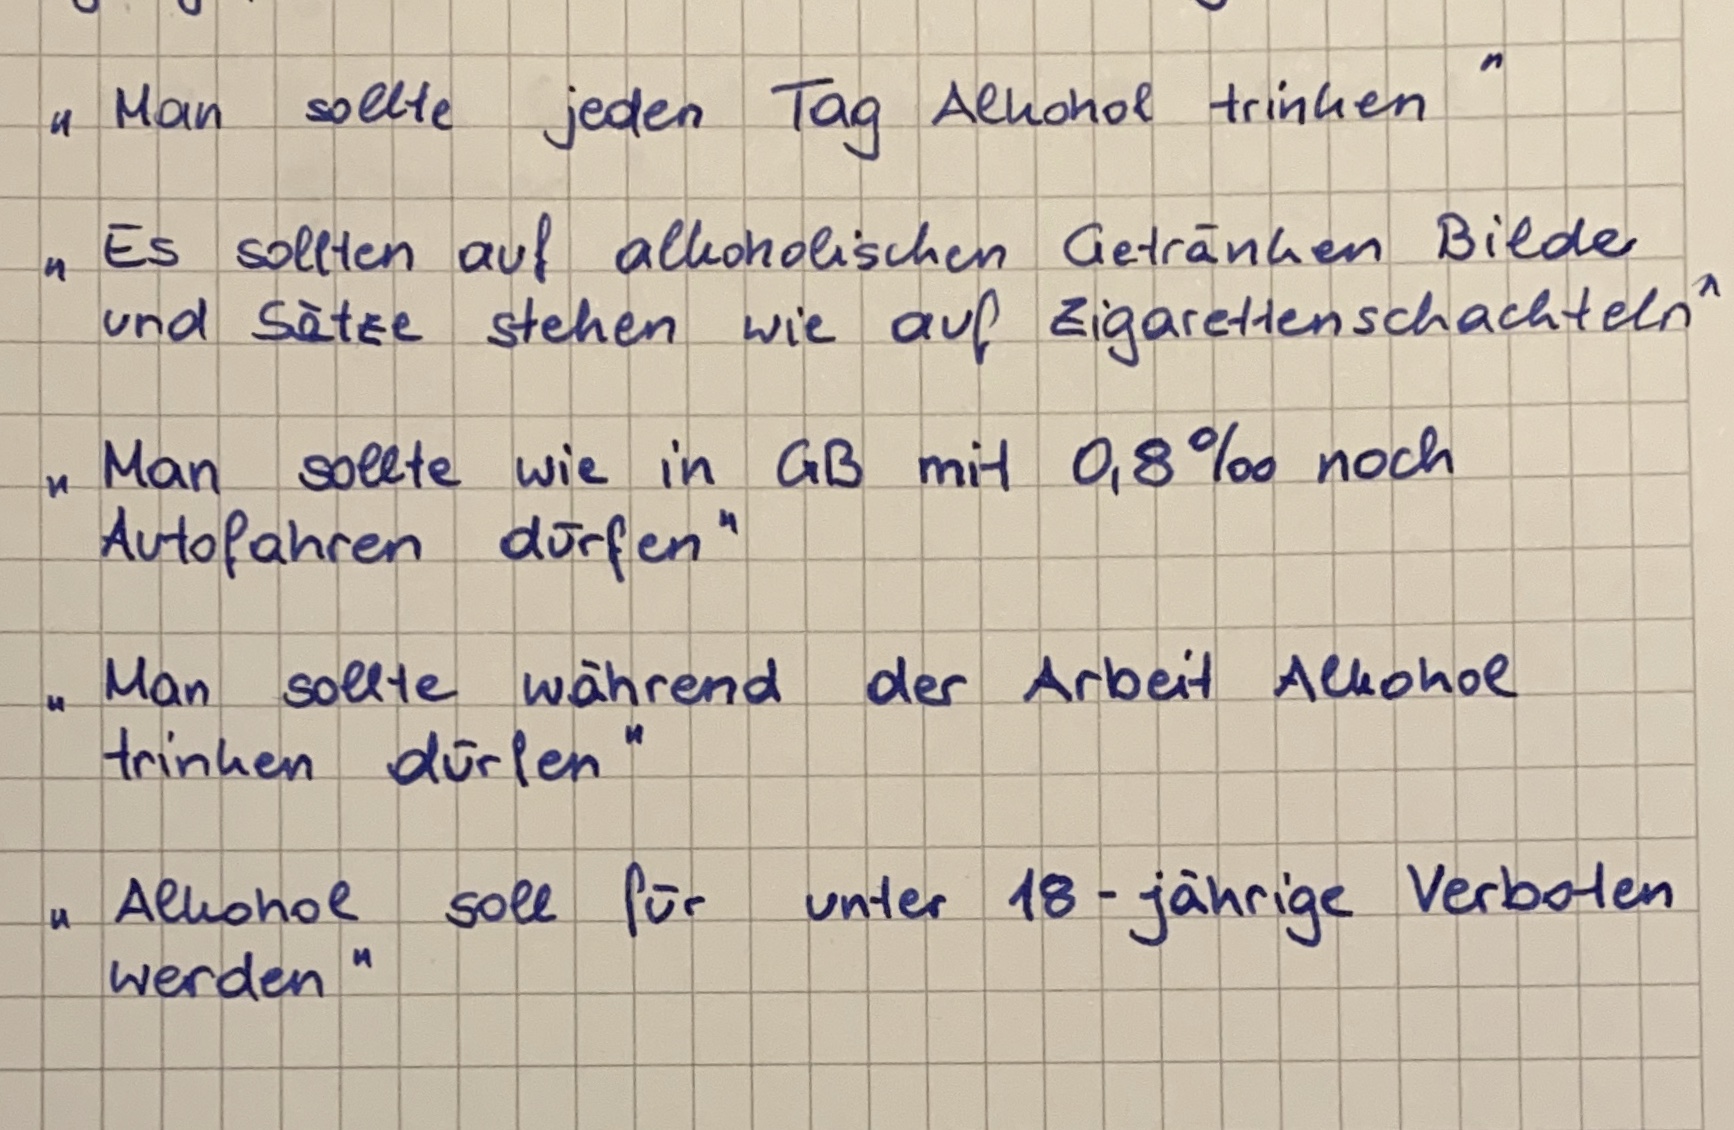 „Man sollte jeden Tag Alkohol trinken"
„Es sollten auf alkoholischen Getränken Bilder
und Sätze stehen wie auf Zigarettenschachteln"
„Man sollte wie in GB mit 0,8‰ noch
Autofahren dürfen"
„Man sollte während der Arbeit Alkohol
trinken dürfen"
„Alkohol soll für unter 18-jährige Verboten
werden"